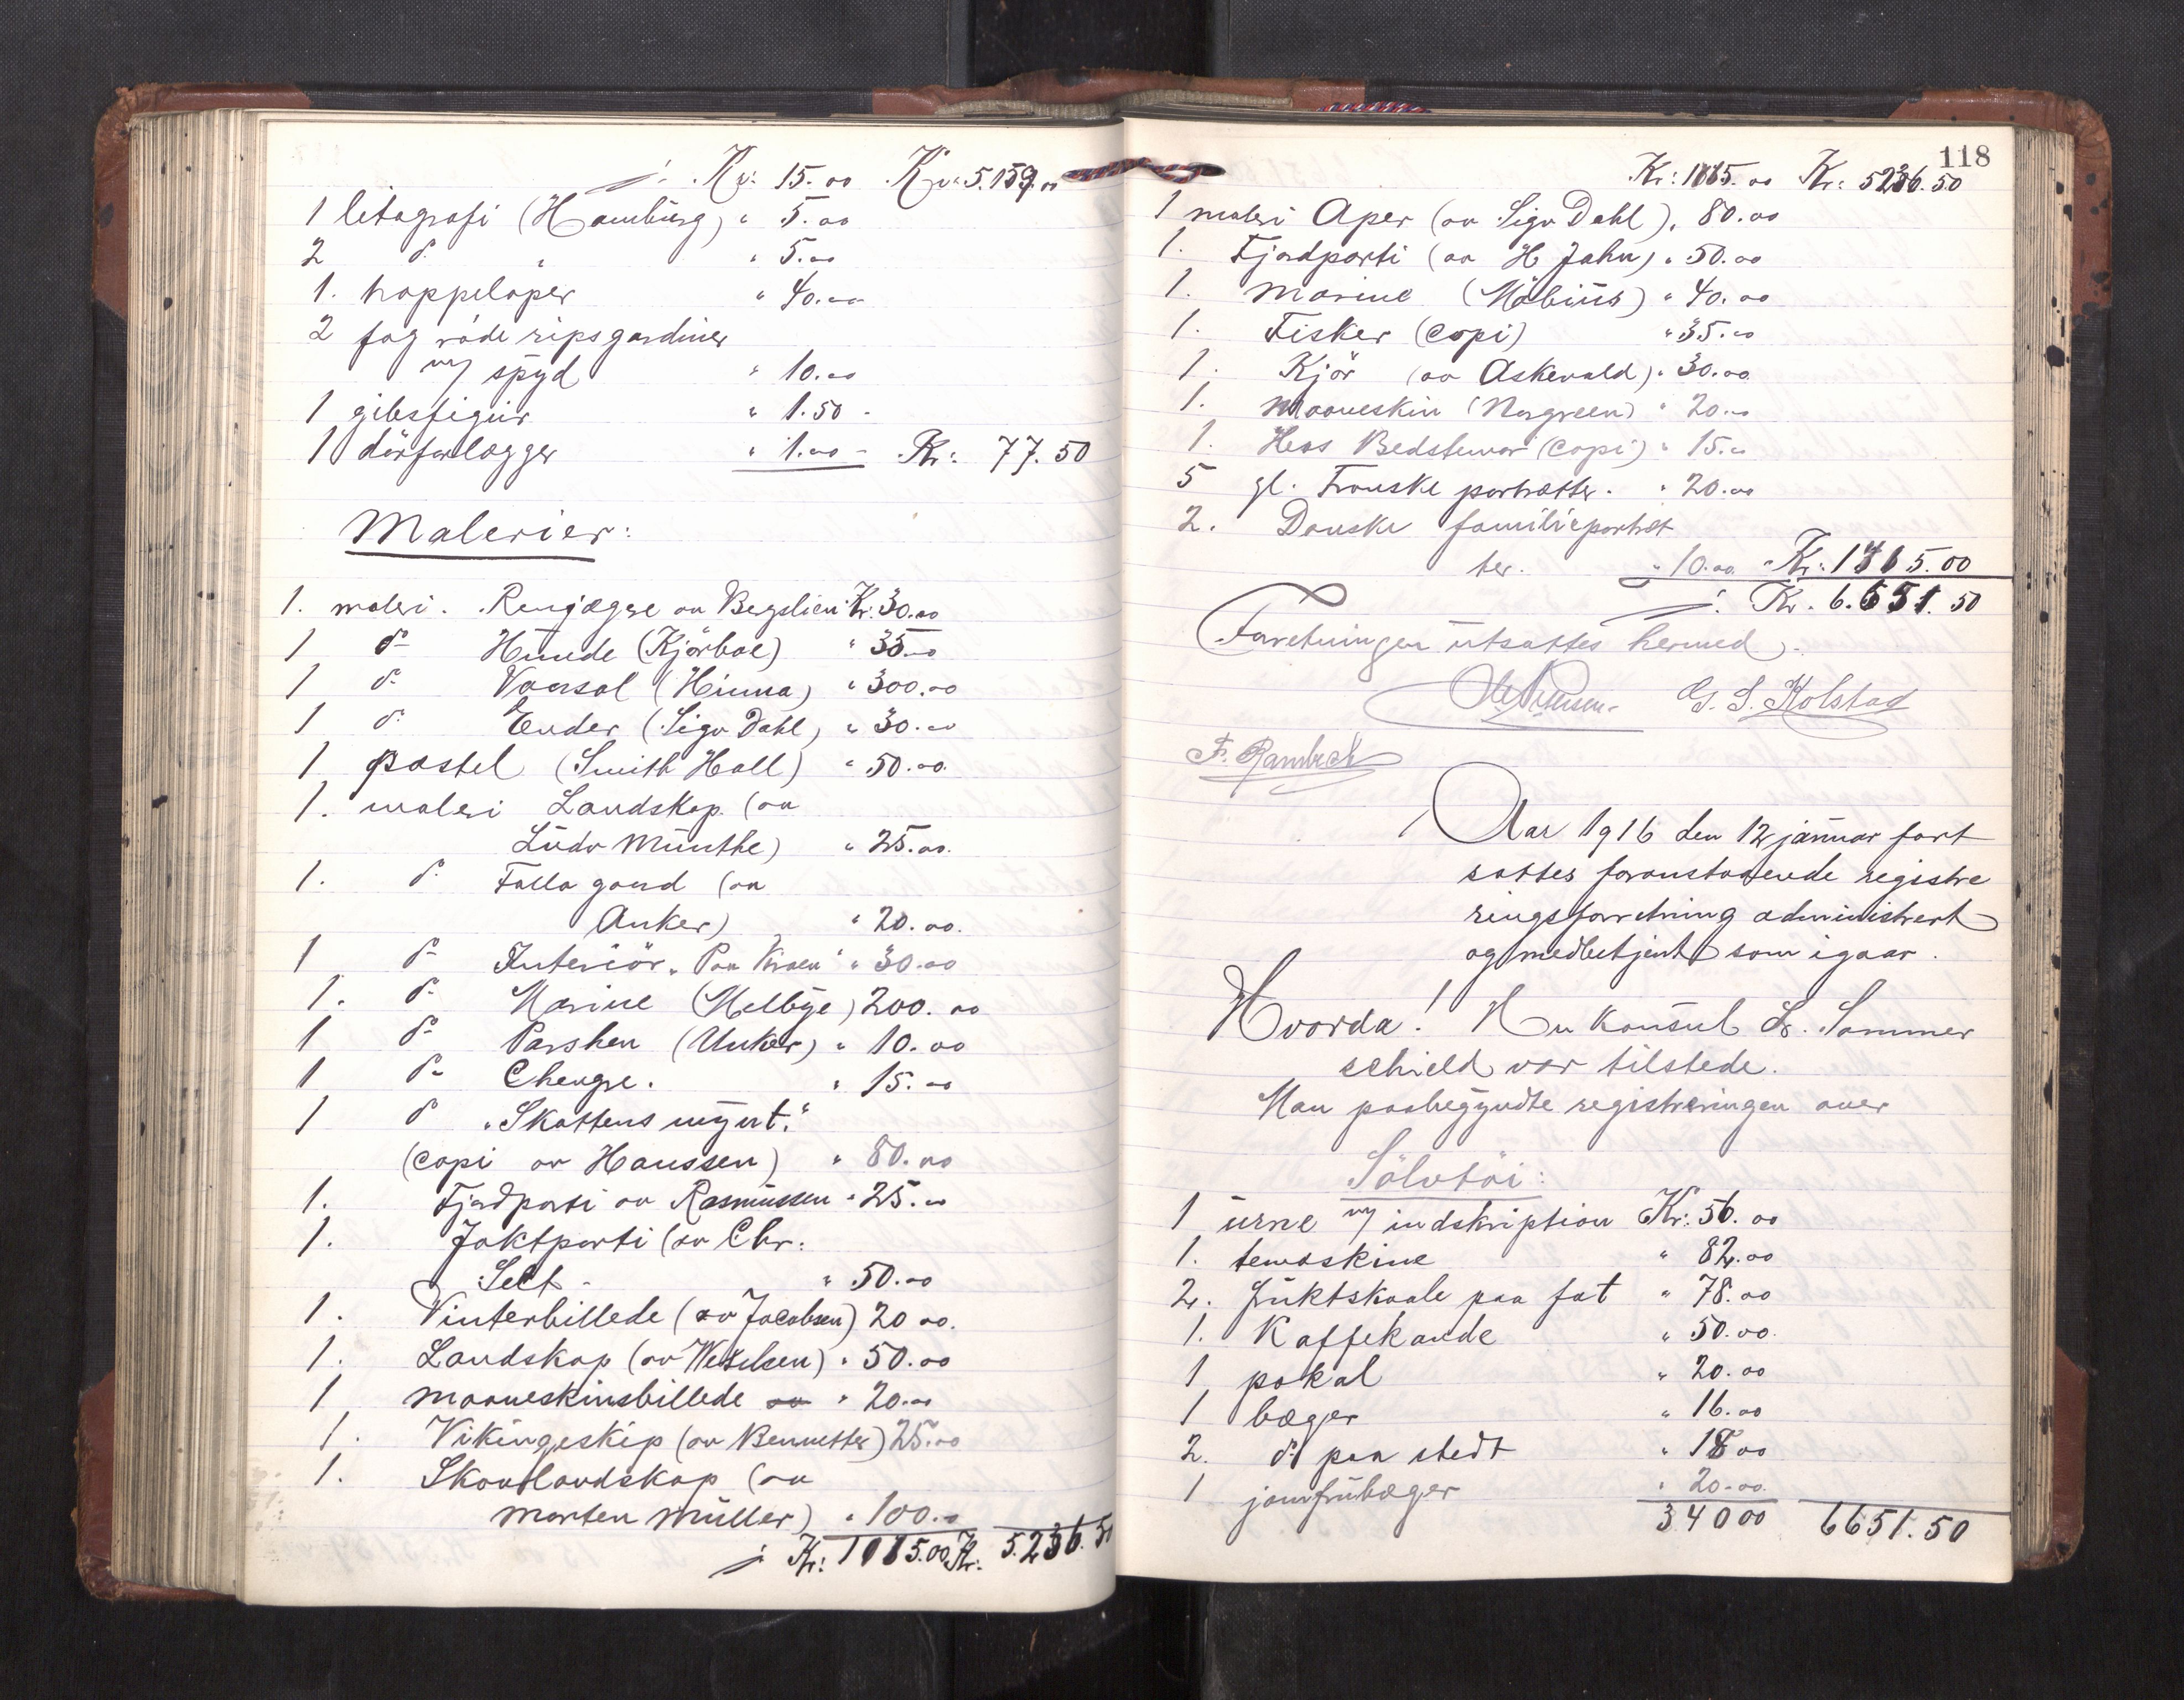 Kr: 15.00 Kr: 5.159.00
1 litografi (Hamburg) " 5.00
2 do " " 5.00
1. trappeløper " 40.00
2 fag røde ripsgardiner
m/ spyd " 10.00
1 gibsfigur " 1.50 -
1 dørforlægger " 1.00 - Kr: 77.50
Malerier:
1. maleri. Renjægre av Bergslien Kr. 30.00
1 do Hunde (Kjørboe) " 35.00
1 do Vaarsol (Hinna) " 300.00
1 do Ender (Sigv Dahl) " 30.00
1 pastel (Smith Hall) " 50.00
1. maleri Landskap (av
Ludv Munthe) " 25.00.
1. do Talla gaard (av
Anker) " 20.00.
1 do Interiör " Paa " " 30.00
1. do Marine (Melbye) 200.00
1 do (Unker) " 10.00
1 do " 15.00
1 do "Skattens mynt."
(copi av Hanssen) " 80.00
1. Fjordparti av Rasmussen " 25.00
1. Jaktparti (av Chr:
" 50.00
1. Vinterbillede (av Jacobsen) 20 00.
1. Landskap (av Wexelsen) " 50.00
1 maaneskinsbillede av " 20.00
1. Vikingeskip (av Bennetter) 25.00
1. Skovlandskap (av
Morten Müller) " 100.00
Kr: 1185.00 Kr: 5.236.50
118
Kr: 1185.00 Kr: 5236.50
1 maleri Aper (av Sigv Dahl). 80.00
1. Fjordparti (av H Jahn) " 50.00
1. Marine (Möbius) " 40.00
1. Fisker (copi) " 35.00
1. Kjör (av Askevald) " 30.00
1. Maaneskin (Norgreen) " 20.00
1. Hos Bedstemor (copi) " 15.00
5 gl. Franske portrætter. " 20.00
2. Danske familieportræt
ter. " 10.00 Kr: 1415.00
Kr. 6.651.50
Forretningen utsattes hermed.
G. S. Kolstad
F. Rambech
Aar 1916 den 12 januar fort
sattes foranstaaende registre
ringsforretning administrert
og medbetjent som igaar.
Hvorda! Hr konsul Sommer
schield var tilstede.
Man paabegyndte registreringen over
Sölvtöi:
1 urne m/ indskription Kr: 56.00
1. temaskine " 82.00
2. fruktskaale paa fat " 78.00
1. Kaffekande " 50.00.
1 pokal " 20.00
1 bæger " 16.00
2. do paa stedt " 18 00
1 jomfrubæger " 20.00.
340 00 6651.50